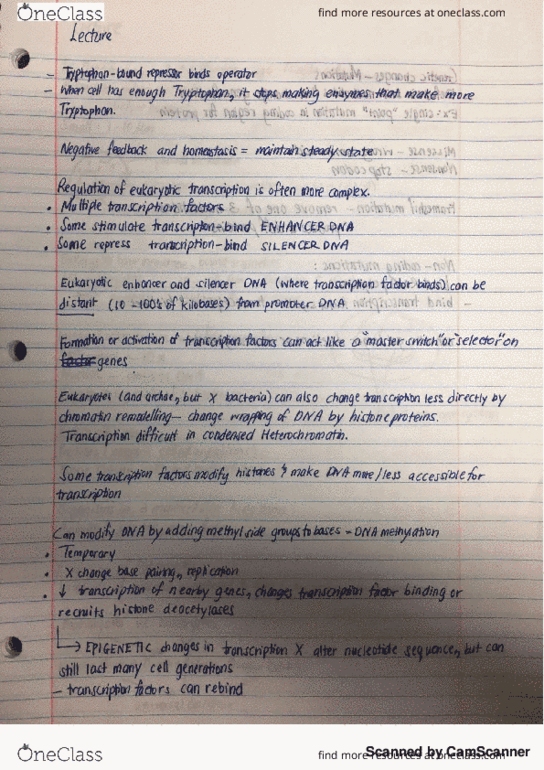 OneClass
find more resources at oneclass.com
Lecture
- Tryptophan-bound repressor binds operator
- When cell has enough Tryptophan, it stops making enzymes that make more
Tryptophan.
Negative feedback and homeostasis = maintain steady state
Regulation of eukaryotic transcription is often more complex.
• Multiple transcription factors
• Some stimulate transcription-bind ENHANCER DNA
• Some repress transcription-bind SILENCER DNA
Eukaryotic enhancer and silencer DNA (where transcription factor binds) can be
distant (10-100's of kilobases) from promoter DNA
Formation or activation of transcription factors can act like a "master switch" or "selector" on
genes
Eukaryotes (and archae, but X bacteria) can also change transcription less directly by
chromatin remodelling - change wrapping of DNA by histone proteins.
Transcription difficult in condensed Heterochromatin.
Some transcription factors modify histones & make DNA more/less accessible for
transcription
Can modify DNA by adding methyl side groups to bases - DNA methylation
• Temporary
• X change base pairing, replication
• ↓ transcription of nearby genes, changes transcription factor binding or
recruits histone deacetylases
↳ EPIGENETIC changes in transcription X alter nucleotide sequence, but can
still last many cell generations
- transcription factors can rebind
OneClass
find more resources at oneclass.com
Scanned by CamScanner